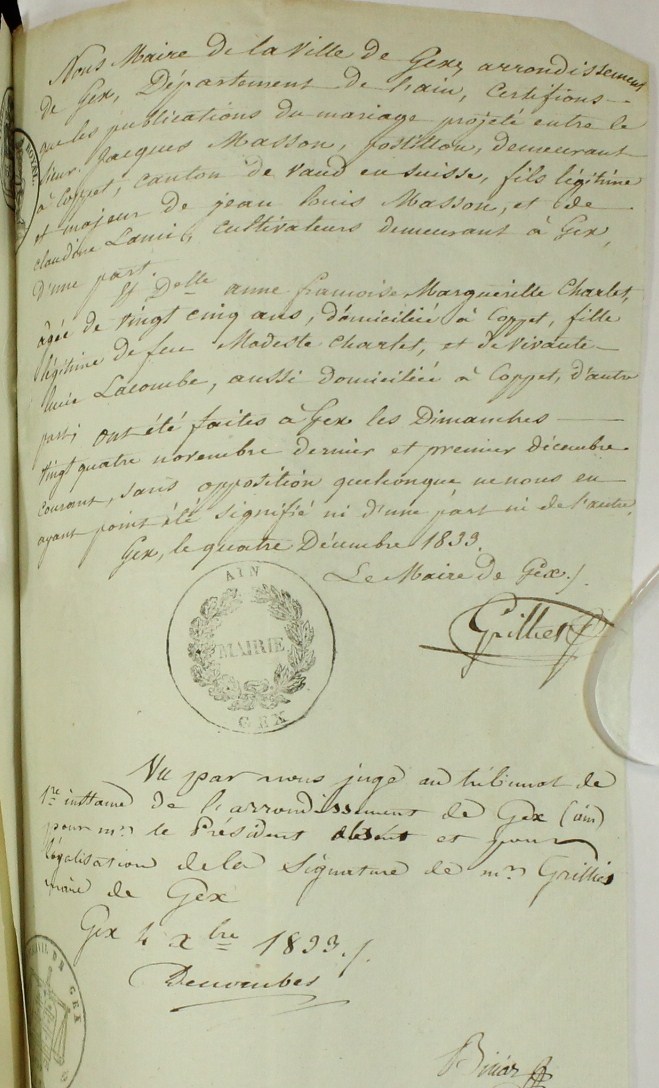 Nous Maire de la Ville de Gex, arrondissement
de Gex, Département de l'ain, Certifions
que les publications du mariage projeté entre le
sieur Jacques Masson, postillon, demeurant
à Coppet, canton de Vaud en suisse, fils légitime
et majeur de jean louis Masson, et de
claudine Lami, cultivateurs demeurant à Gex,
D'une part.
Et Delle anne françoise Margueritte Charlet,
âgée de vingt cinq ans, domiciliée à Coppet, fille
légitime de feu Modeste Charlet, et de vivante
Lacombe, aussi domiciliée à Coppet, d'autre
part; ont été faites à Gex les Dimanches
vingt quatre novembre dernier et premier décembre
courant, sans opposition quelconque ne nous en
ayant point été signifié ni d'une part ni de l'autre.
Gex, le quatre Décembre 1833.
Le Maire de Gex./.
AIN
MAIRIE
GEX
Vu par nous juge au tribunal de
1re instance de l'arrondissement de Gex (ain)
pour mr le Président absent et pour
légalisation de la signature de mr
maire de Gex
Gex 4 Xbre 1833./.
DE GEX